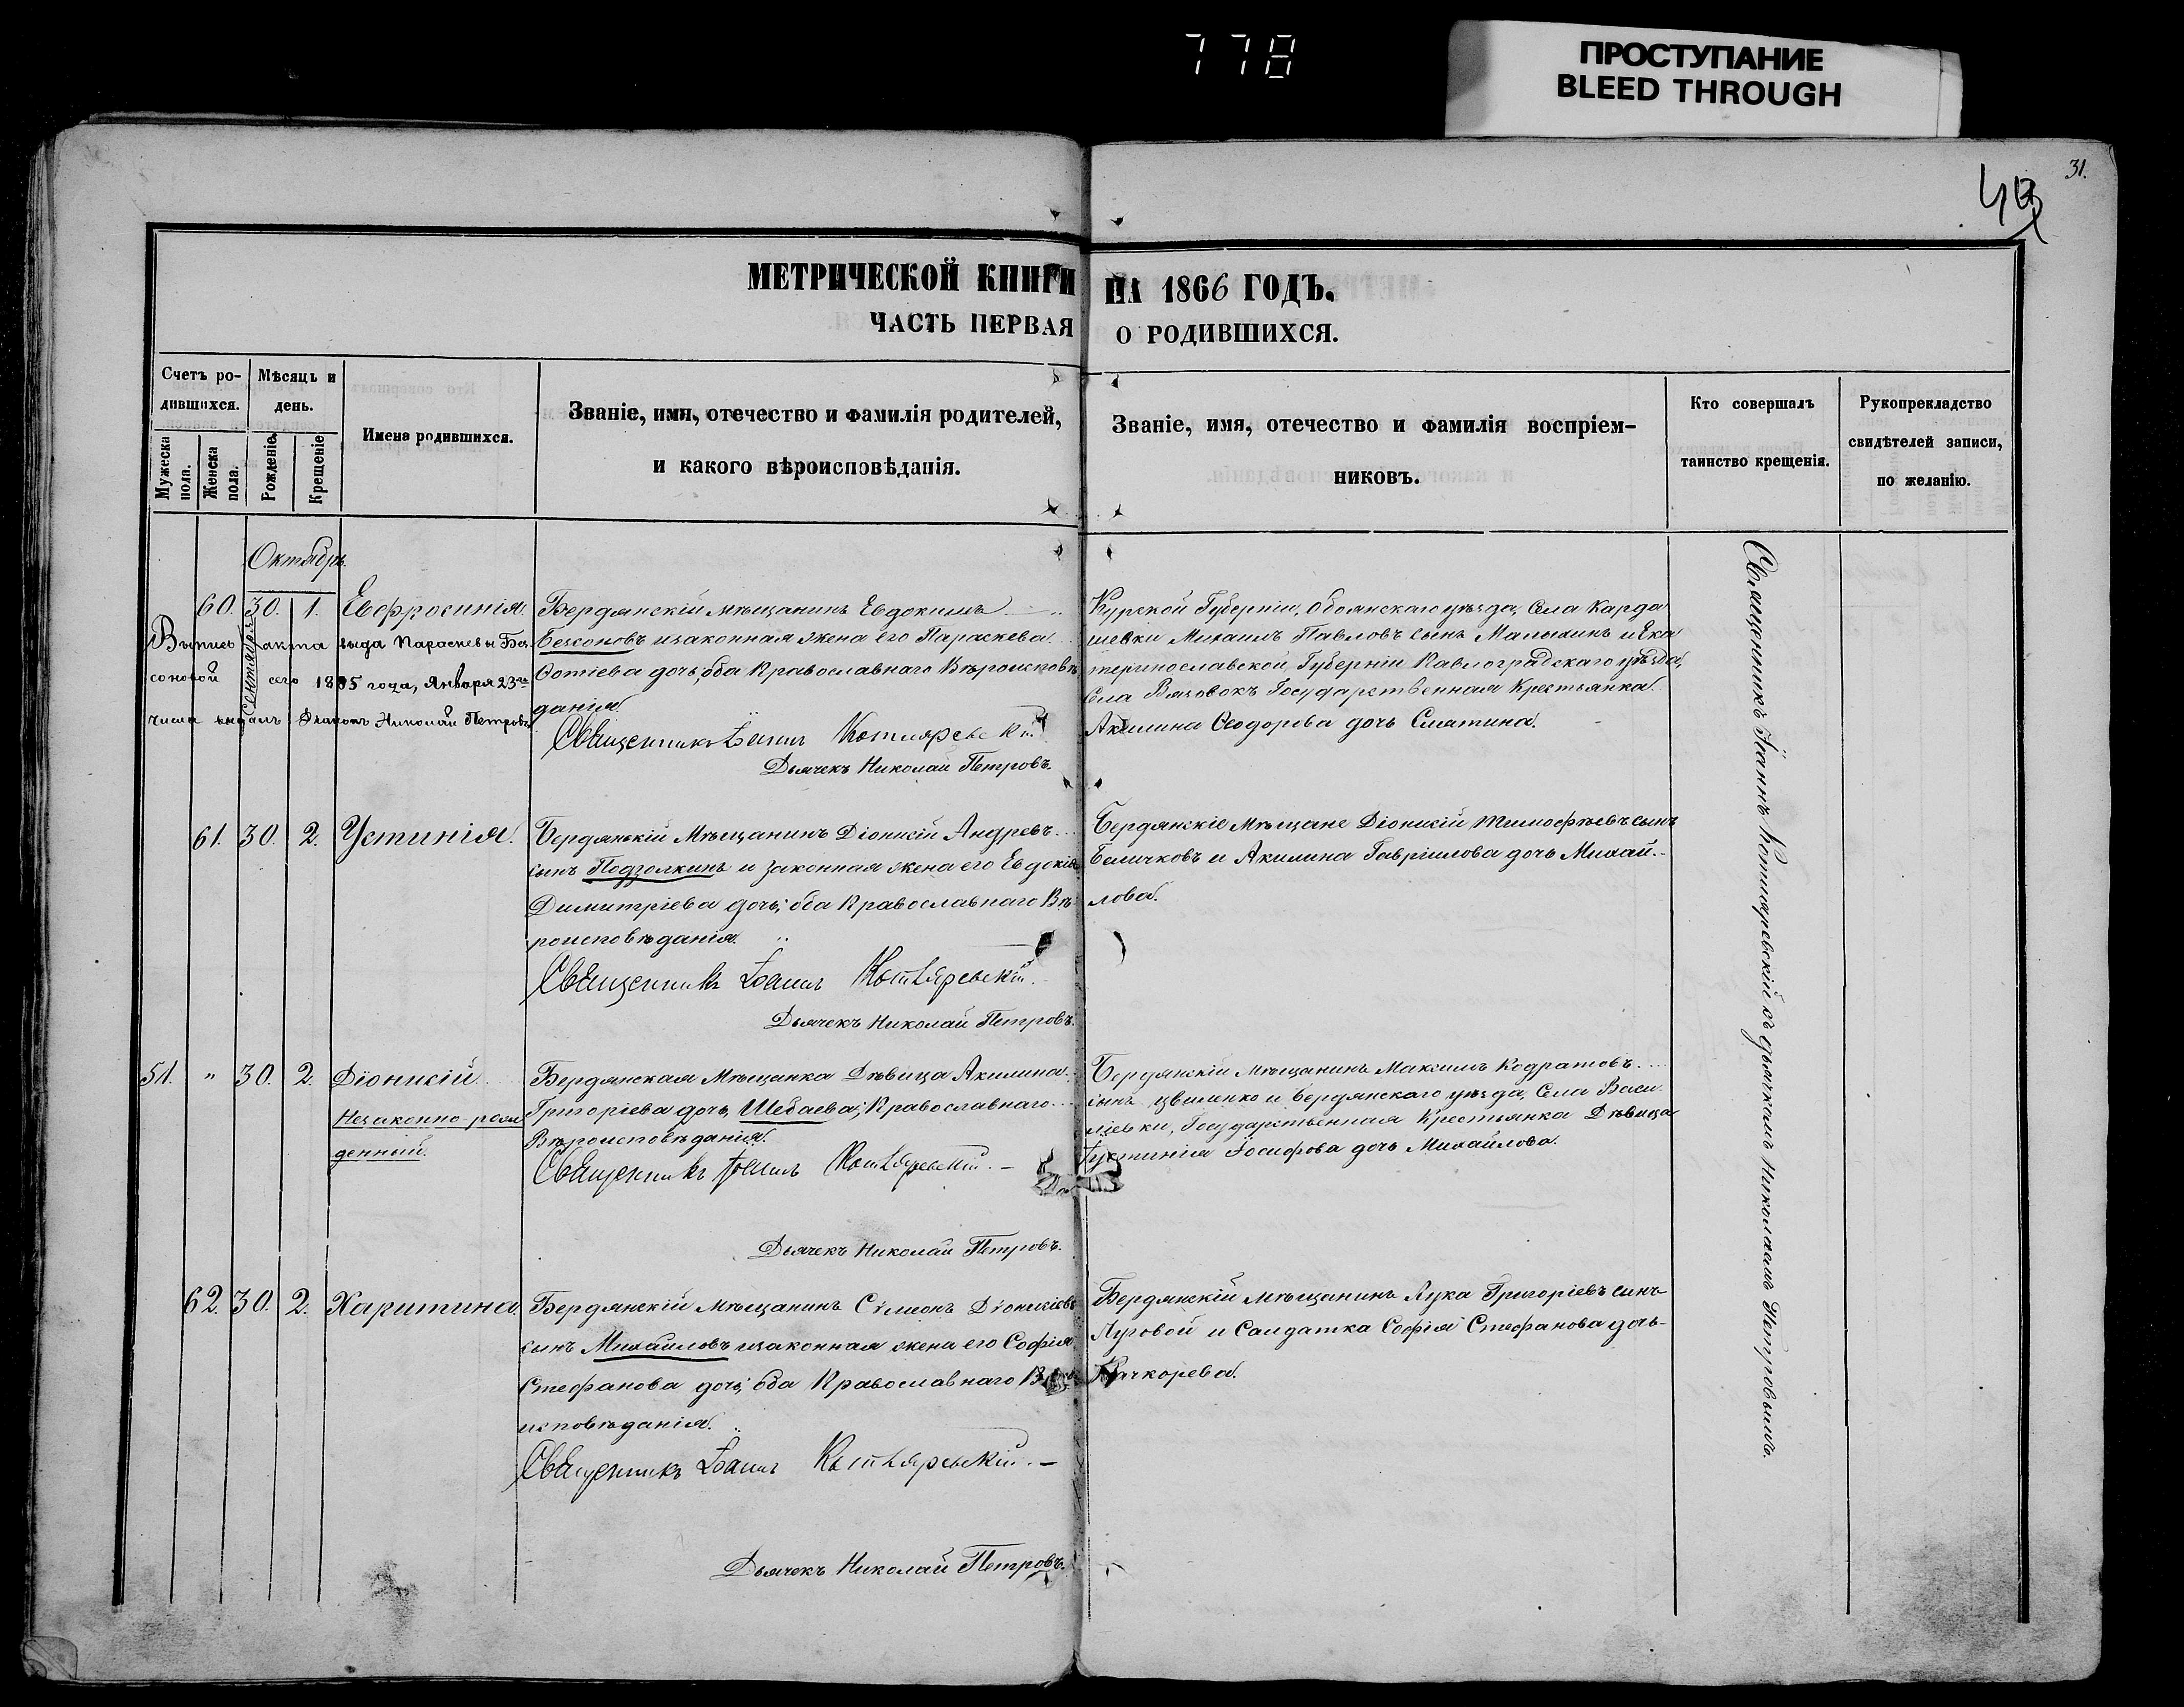 778
ПРОСТУПАНИЕ
BLEED THROUGH
31.
МЕТРИЧЕСКОЙ КНИГИ НА 1866 ГОДЪ.
ЧАСТЬ ПЕРВАЯ О РОДИВШИХСЯ.
Счетъ ро-
дившихся.
Мужеска
пола.
Женска
пола.
Мѣсяцъ и
день.
Рожденіе.
Крещеніе
Имена родившихся.
Званіе, имя, отечество и фамилія родителей,
и какого вѣроисповѣданія.
Званіе, имя, отечество и фамилія воспріем-
никовъ.
Кто совершалъ
таинство крещенія.
Рукоприкладство
свидѣтелей записи,
по желанію.
Октябрь.
Сентября
60. 30. 1. Евфросинія.
Выпись акта выда Параскевы Без
соновой сего 1885 года, Января 23го
числа выдалъ Дьяконъ Николай Петровъ
Бердянскій мѣщанинъ Евдокимъ
Безсоновъ изаконная жена его Параскева
Фотіева дочь; оба Православнаго Вѣроисповѣ
данія.
Священникъ Іоаннъ Котляревскій
Дьячекъ Николай Петровъ.
Курской Губерніи, Обоянскаго уѣзда, Села Карда
шевки Михаилъ Павловъ сынъ Малыхинъ и Ека
теринославской Губерніи Павлоградскаго уѣзда,
Села Вязовокъ Государственная Крестьянка
Акилина Ѳеодорова дочь Сматина.
61. 30. 2. Устинія.
Бердянскій Мѣщанинъ Діонисій Андреевъ
сынъ Подзолкинъ и законная жена его Евдокія
Димитріева дочь; оба Православнаго Вѣ
роисповѣданія.
Священникъ Іоаннъ Котляревскій.
Дьячекъ Николай Петровъ.
Бердянскіе Мѣщане Діонисій Тимофѣевъ сынъ
Беличковъ и Акилина Гавріилова дочь Михай-
лова.
51. " 30. 2. Діонисій
Незаконно рож
денный.
Бердянская Мѣщанка Дѣвица Акилина
Григоріева дочь Шебаева; Православнаго
Вѣроисповѣданія.
Священникъ Іоаннъ Котляревскій.
Дьячекъ Николай Петровъ.
Бердянскій мѣщанинъ Максимъ Кодратовъ
сынъ Цвиленко и Бердянскаго уѣзда, Села Васи
лієвки, Государственная Крестьянка Дѣвица
Іустинія Іосифова дочь Михайлова.
62. 30. 2. Харитина.
Бердянскій мѣщанинъ Сімеонъ Діонисіевъ
сынъ Михайловъ изаконная жена его Софія
Стефанова дочь; оба Православнаго Вѣро
исповѣданія.
Священникъ Іоаннъ Котляревскій.
Дьячекъ Николай Петровъ.
Бердянскій мѣщанинъ Лука Григоріевъ сынъ
Луговой и Салдатка Софія Стефанова дочь
Качкорева.
Священникъ Іоаннъ Котляревскій съ дьячкомъ Николаемъ Петровымъ.